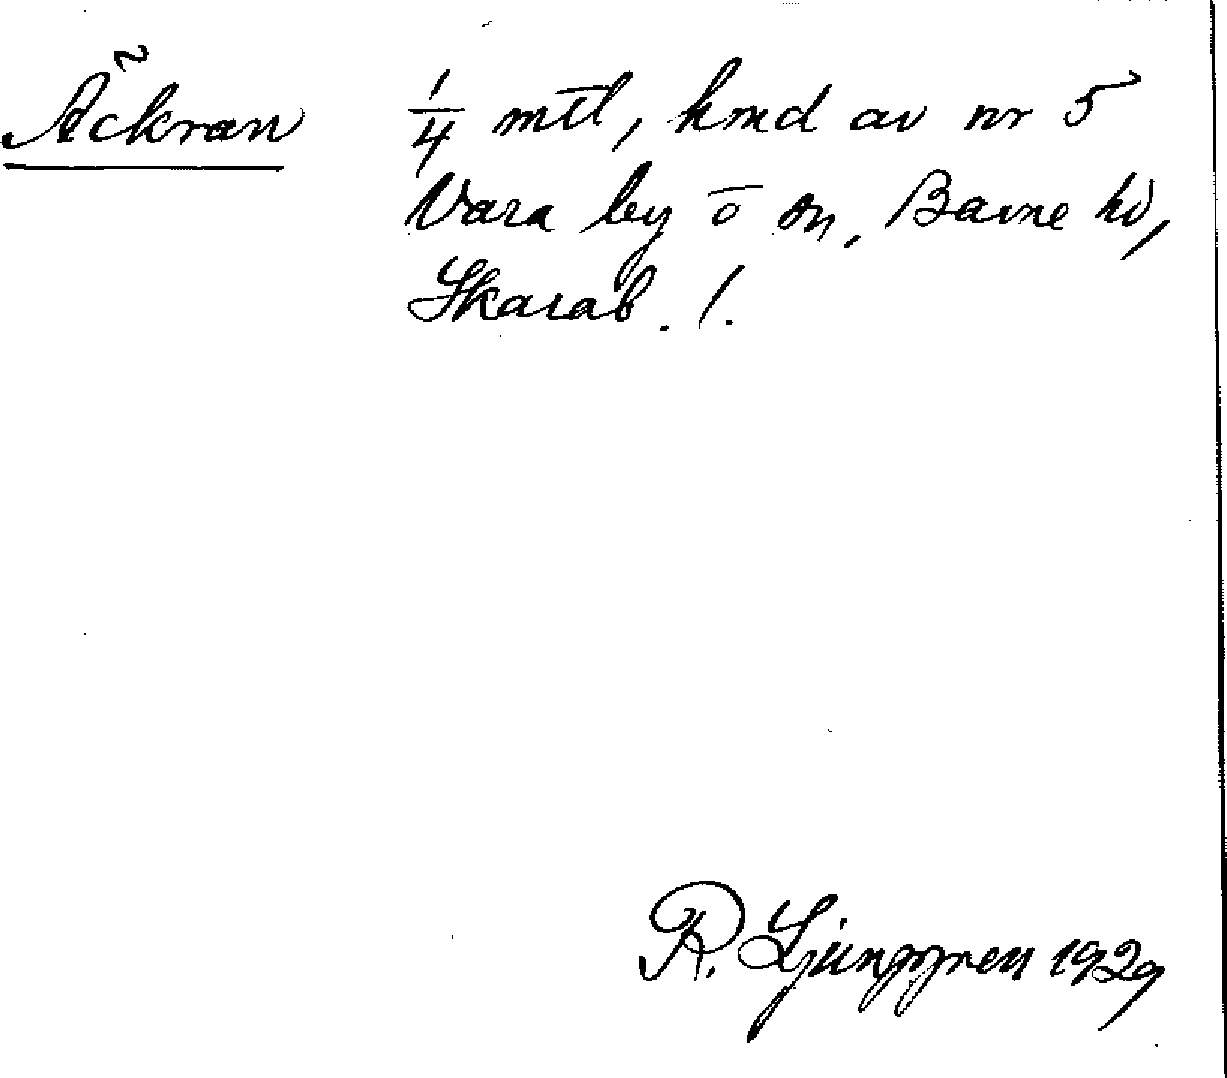 Åckran
1/4 mtl, hmd av nr 5
Vara by o sn, Barne hd,
Skarab. l.
R. Ljunggren 1929